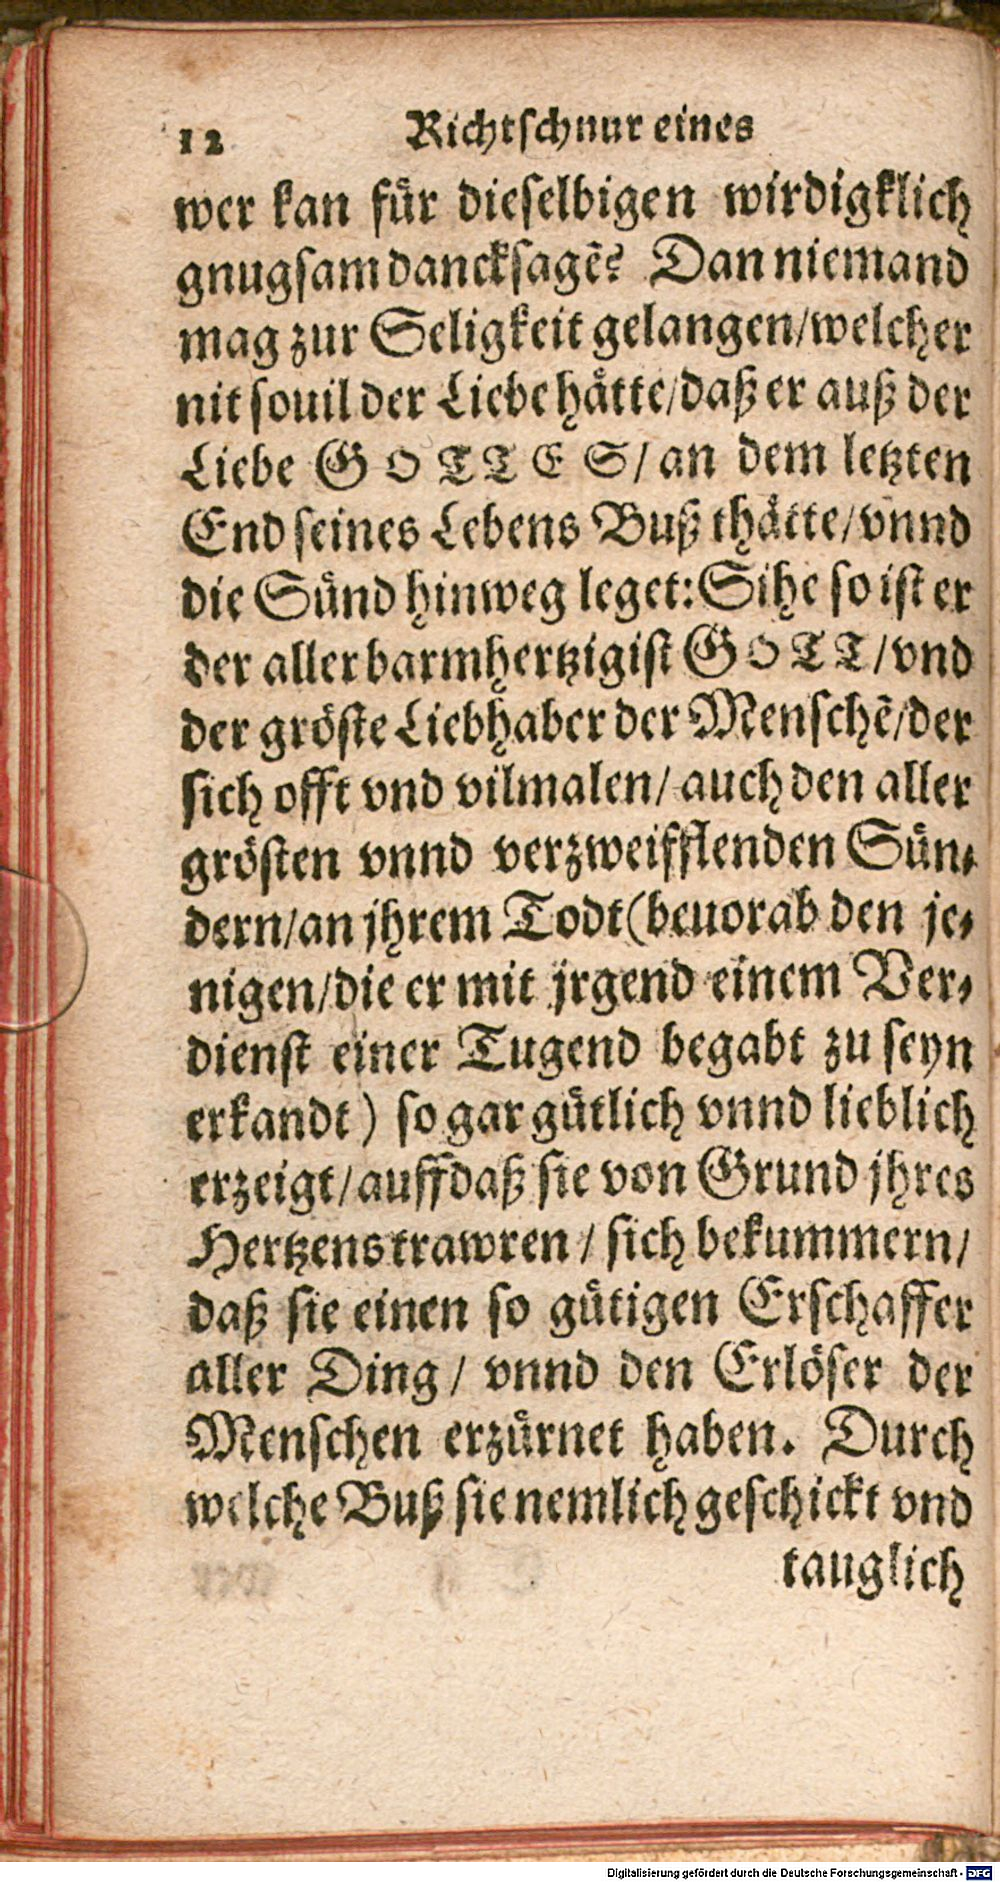 12 Richtſchnur eines
wer kan fuͤr dieſelbigen wirdigklich
gnugſam danckſagẽ? Dan niemand
mag zur Seligkeit gelangen/welcher
nit ſouil der Liebe haͤtte/daß er auß der
Liebe GOTTES/an dem letzten
End ſeines Lebens Buß thaͤtte/vnnd
die Suͤnd hinweg leget: Sihe ſo iſt er
der allerbarmhertzigiſt GOTT/vnd
der groͤſte Liebhaber der Menſchẽ/der
ſich offt vnd vilmalen/ auch den aller
groͤſten vnnd verzweifflenden Suͤn⸗
dern/an jhrem Todt (beuorab den je⸗
nigen/die er mit jrgend einem Ver⸗
dienſt einer Tugend begabt zu ſeyn
erkandt) ſo gar guͤtlich vnnd lieblich
erzeigt/auffdaß ſie von Grund jhres
Hertzens trawren / ſich bekummern/
daß ſie einen ſo guͤtigen Erſchaffer
aller Ding / vnnd den Erloͤſer der
Menſchen erzuͤrnet haben. Durch
welche Buß ſie nemlich geſchickt vnd
tauglich
Digitalisierung gefördert durch die Deutsche Forschungsgemeinschaft - DFG